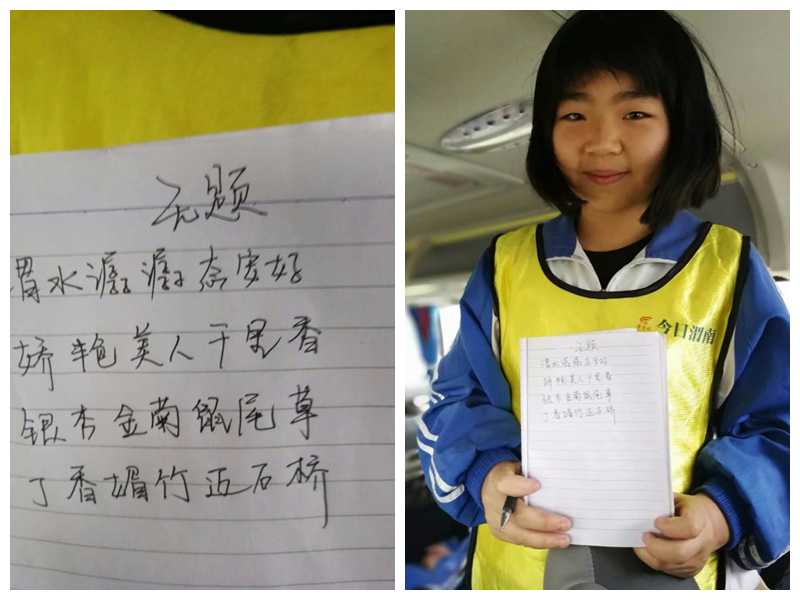 无题
渭水潺潺态安好
娇艳美人千里香
银杏金菊鼠尾草
丁香媚竹迈石桥
今日渭南
无题
渭水潺潺态安好
娇艳美人千里香
银杏金菊鼠尾草
丁香媚竹迈石桥